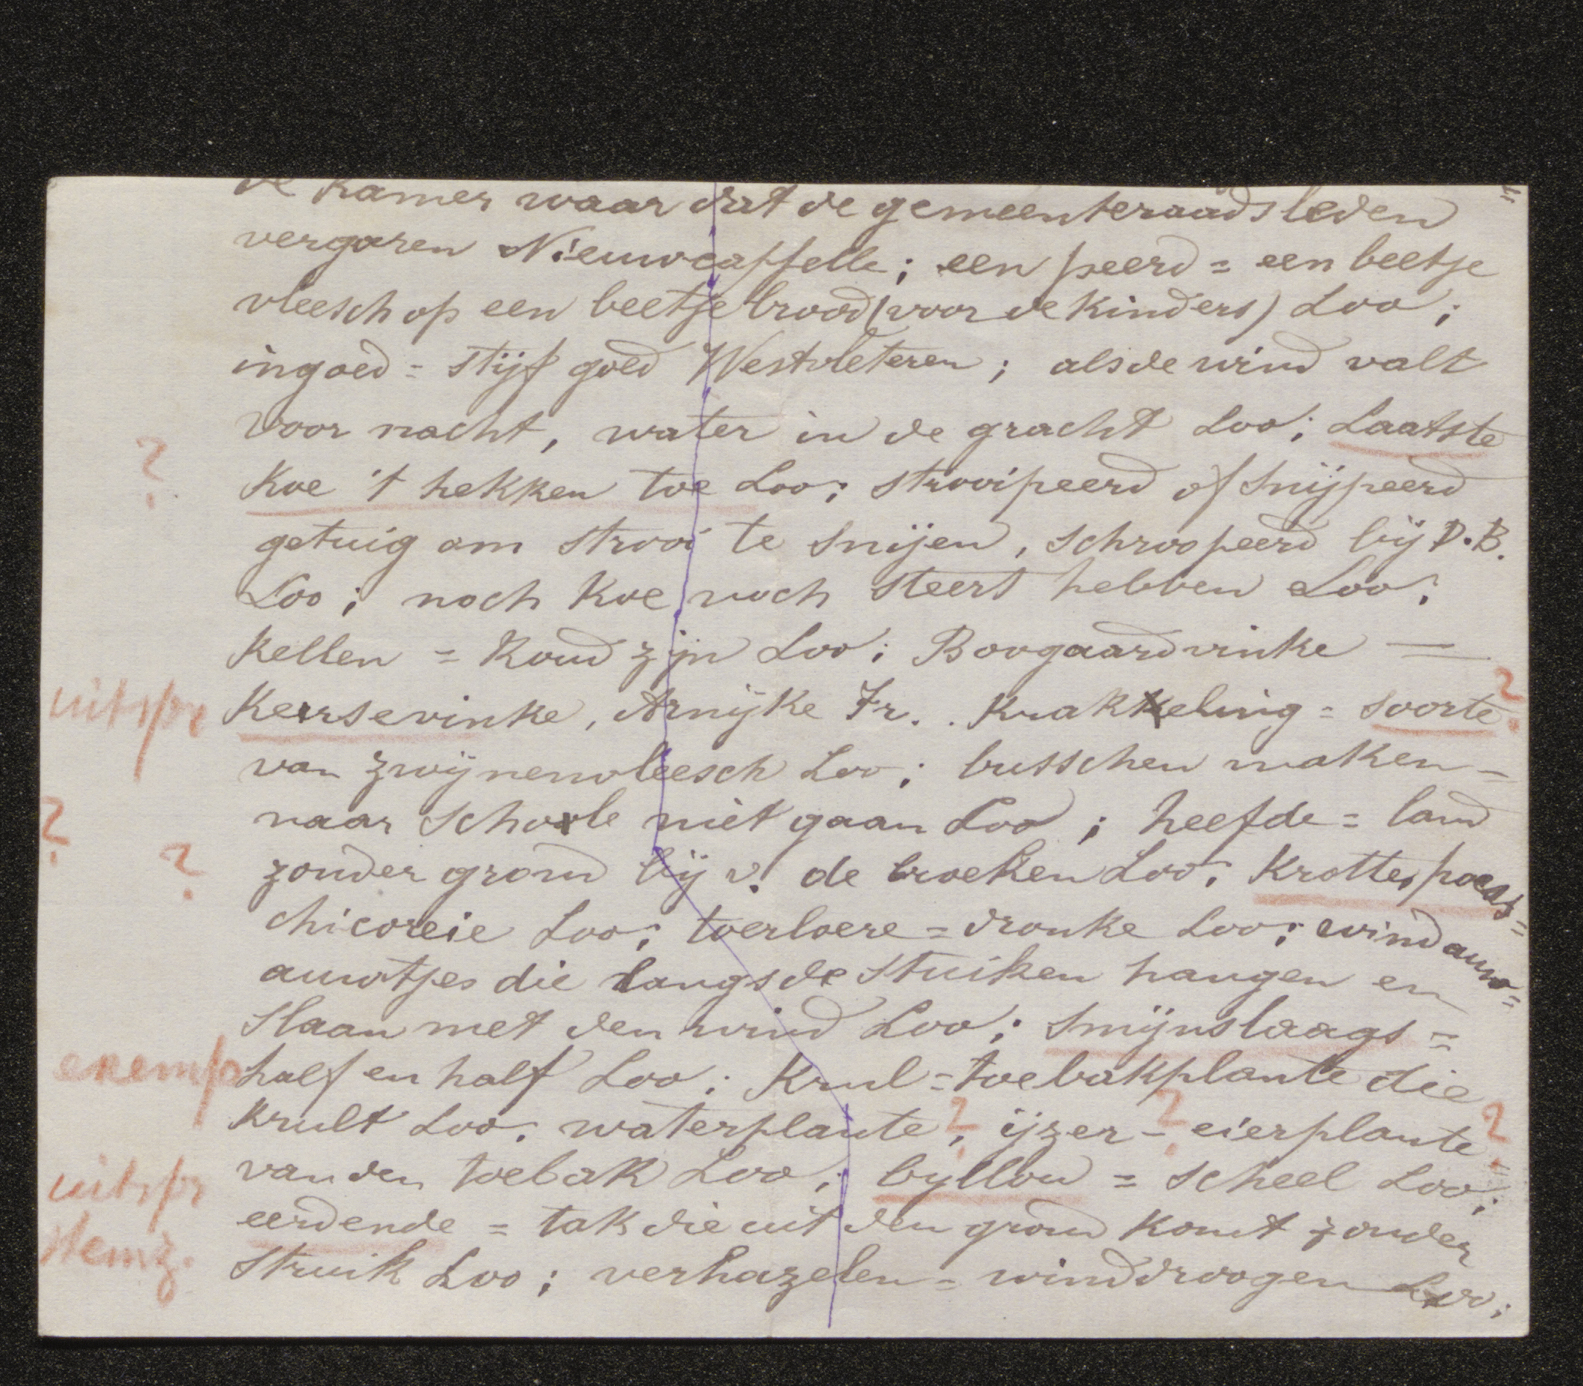 de kamer waar dat de gemeenteraadsleden
vergaren Nieuwcappelle; een peerd = een beetje
vleesch op een beetje brood (voor de kinders) Loo;
ingoed = stijf goed Westvleteren; als de wind valt
voor nacht, water in de gracht Loo; Laatste
?
koe 't hekken toe Loo; strooipeerd of snijpeerd
getuig om strooi te snijen, schroopeerd bij D.B.
Loo; noch koe noch steert hebben Loo;
kellen = koud zijn Loo; Boogaardvinke —
uitspr Kerrsevinke, Arnijke Fr. . Krakkeling = soorte ?
van zwijnenvleesch Loo; busschen maken =
? naar schole niet gaan Loo; heefde = land
? zonder grond bij v. de broeken Loo; Krottepoes =
chicoreie Loo; toerloere = dronke Loo; wind auw =
auwtjes die langs de stuiken hangen en
slaan met den wind Loo; smijnslaags =
exemp half en half Loo; Krul = toebakplante die
krult Loo; waterplante ?, ijzer - ? eierplante ?
uitspr van den toebak Loo; byllou = scheel Loo;
stemz. eerdende = tak die uit den grond komt zonder
struik Loo; verhazelen = winddroogen Loo;